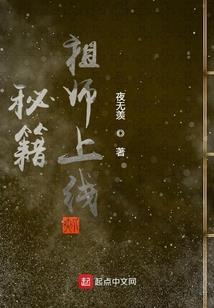 祖师上线
秘籍
夜无羡
著
起点中文网